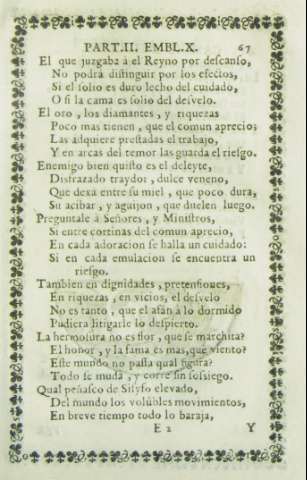 PART.II. EMBL.X. 67
El que juzgaba á el Reyno por descanso,
No podrá distinguir por los efectos,
Si el solio es duro lecho del cuidado,
O si la cama es solio del desvelo.
El oro , los diamantes , y riquezas
Poco mas tienen , que el comun aprecio;
Las adquiere prestadas el trabajo,
Y en arcas del temor las guarda el riesgo.
Enemigo bien quisto es el deleyte,
Disfrazado traydor , dulce veneno,
Que dexa entre su miel , que poco dura,
Su acibar , y aguijon , que duelen luego.
Preguntale á Señores , y Ministros,
Si entre cortinas del comun aprecio,
En cada adoracion se halla un cuidado:
Si en cada emulacion se encuentra un
riesgo.
Tambien en dignidades , pretensiones,
En riquezas , en vicios, el desvelo
No es tanto , que el afán á lo dormido
Pudiera litigarle lo despierto.
La hermosura no es flor , que se marchita?
El honor , y la fama es mas, que viento?
Este mundo no passa qual figura?
Todo se muda , y corre sin sossiego.
Qual peñasco de Sisyfo elevado,
Del mundo los volubles movimientos,
En breve tiempo todo lo baraja,
E 2 Y